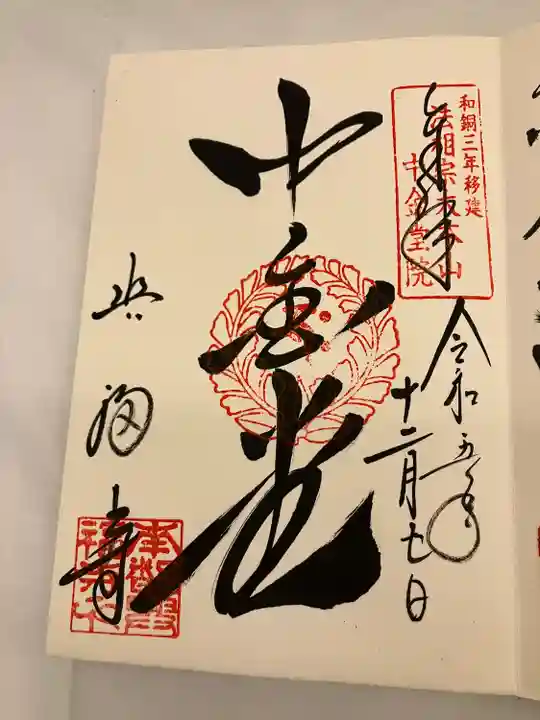 奉拝
和銅三年移建
法相宗大本山
中金堂院
令和五年
十二月七日
中金堂
興福寺